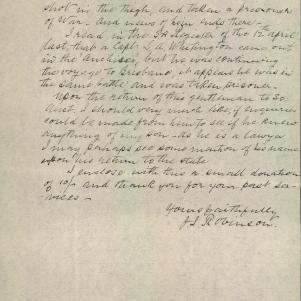 shot in the thigh, and taken a prisoner
of War - and news of him ends there -
I read in the S.A. Register of the 12th april
last, that a Capt. L. A. Whitington came out
in the Anchises, but he was continuing
the voyage to Brisbane, it appears he was in
the same battle and was taken prisoner -
Upon the return of this gentleman to So.
Aust. I should very much like, if enquiries
could be made from him to see if he knew
anything of my son - as he is a lawyer
I may perhaps see some mention of his name
upon his return to the state
I enclose with this a small donation
of 10/- and thank you for your past ser-
vices -
Yours faithfully
J. S. Robinson.